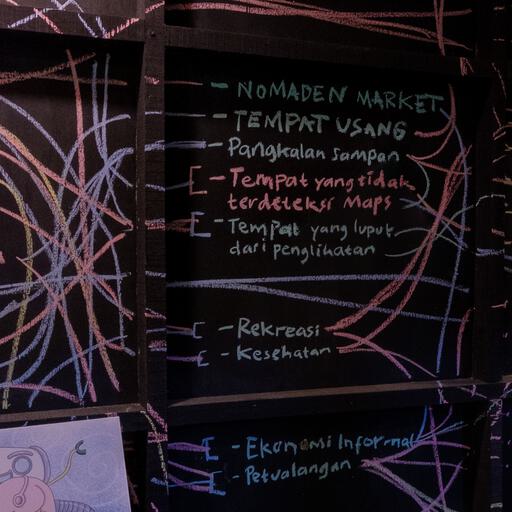 - NOMADEN MARKET
- TEMPAT USANG
- Pangkalan sampan
- Tempat yang tidak
terdeteksi Maps
- Tempat yang luput
dari penglihatan
- Rekreasi
- Kesehatan
- Ekonomi Informal
- Petualangan